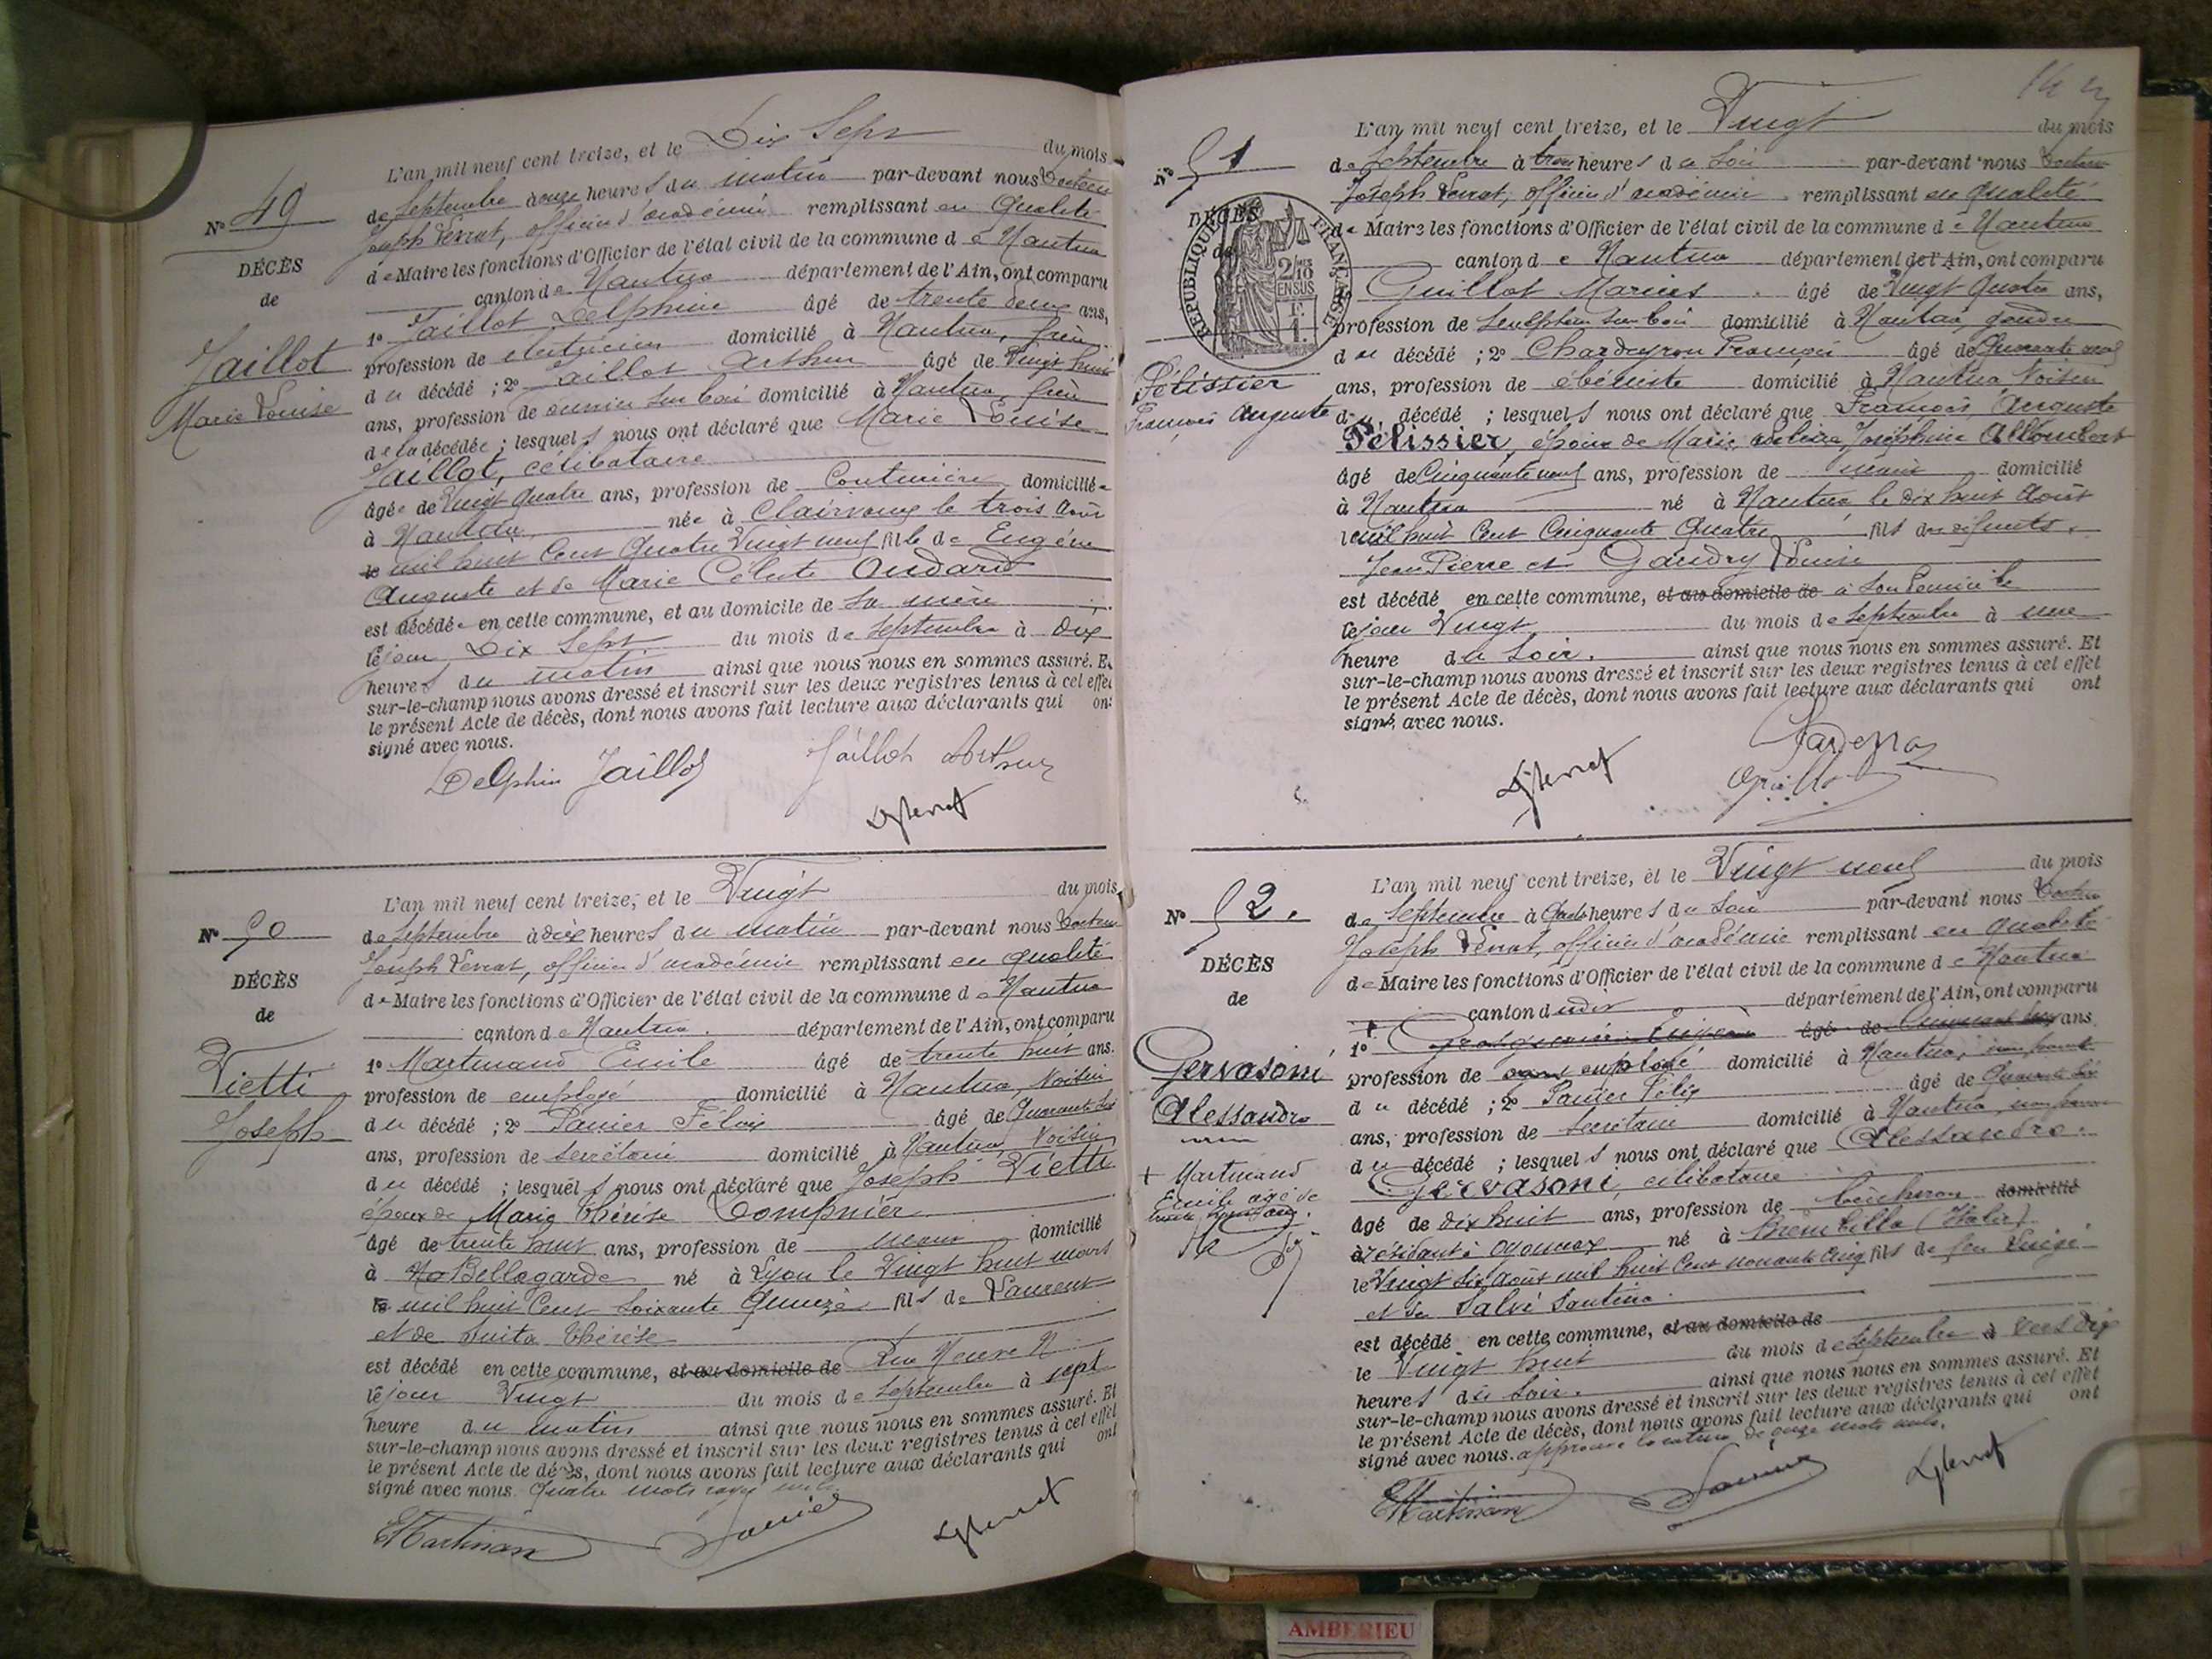 L'an mil neuf cent treize, et le Dix Sept du mois
de Septembre à onze heures du matin par-devant nous Docteur
Joseph Verrat, officier d'académie remplissant en qualité
de Maire les fonctions d'Officier de l'état civil de la commune de Nantua
canton de Nantua département de l'Ain, ont comparu
1° Jaillot Delphin âgé de trente deux ans,
profession de électricien domicilié à Nantua, frère
du décédé ; 2° Jaillot Arthur âgé de Vingt huit
ans, profession de ouvrier sur bois domicilié à Nantua, frère
de la décédée ; lesquels nous ont déclaré que Marie Louise
Jaillot, célibataire
âgée de Vingt quatre ans, profession de Couturière domiciliée
à Nantua née à Clairvaux le trois Août
le mil huit Cent Quatre Vingt neuf fille de Eugène
Auguste et de Marie Céleste Oudard
est décédée en cette commune, et au domicile de sa mère
le jour Dix Sept du mois de Septembre à Dix
heures du matin ainsi que nous nous en sommes assuré. Et
sur-le-champ nous avons dressé et inscrit sur les deux registres tenus à cet effet
le présent Acte de décès, dont nous avons fait lecture aux déclarants qui ont
signé avec nous.
N° 49
DÉCÈS
de
Jaillot
Marie Louise
Delphin Jaillot Jaillot Arthur
L'an mil neuf cent treize, et le Vingt du mois
de Septembre à dix heures du matin par-devant nous Docteur
Joseph Verrat, officier d'académie remplissant en qualité
de Maire les fonctions d'Officier de l'état civil de la commune de Nantua
canton de Nantua. département de l'Ain, ont comparu
1° Martinand Emile âgé de trente huit ans.
profession de employé domicilié à Nantua, Voisin
du décédé ; 2° Panier Félix âgé de Quarante six
ans, profession de secrétaire domicilié à Nantua, Voisin
du décédé ; lesquels nous ont déclaré que Joseph Vietti
époux de Marie Thérèse
âgé de trente huit ans, profession de domicilié
à Bellegarde né à Lyon le Vingt huit mars
le mil huit Cent soixante Quinze fils de Laurent
et de Thérèse
est décédé en cette commune, et au domicile de Rue Neuve N
le jour Vingt du mois de Septembre à sept
heure du matin ainsi que nous nous en sommes assuré. Et
sur-le-champ nous avons dressé et inscrit sur les deux registres tenus à cet effet
le présent Acte de décès, dont nous avons fait lecture aux déclarants qui ont
signé avec nous. Quatre mots rayés nuls.
N° 50
DÉCÈS
de
Vietti
Joseph
EMartinand Panier
L'an mil neuf cent treize, et le Vingt du mois
de Septembre à trois heures du soir par-devant nous Docteur
Joseph Verrat, officier d'académie remplissant en qualité
de Maire les fonctions d'Officier de l'état civil de la commune de Nantua
canton de Nantua département de l'Ain, ont comparu
Guillot Marius âgé de Vingt Quatre ans,
profession de sculpteur sur bois domicilié à Nantua, gendre
du décédé ; 2° Chardeyron François âgé de Quarante neuf
ans, profession de ébéniste domicilié à Nantua Voisin
du décédé ; lesquels nous ont déclaré que François, Auguste
Pélissier, époux de Marie Joséphine Allombert
âgé de Cinquante neuf ans, profession de domicilié
à Nantua né à Nantua le dix huit Août
mil huit Cent Cinquante Quatre fils des défunts
Jean Pierre et Gaudry Louise
est décédé en cette commune, et au domicile de à son domicile
le jour Vingt du mois de Septembre à une
heure du soir. ainsi que nous nous en sommes assuré. Et
sur-le-champ nous avons dressé et inscrit sur les deux registres tenus à cet effet
le présent Acte de décès, dont nous avons fait lecture aux déclarants qui ont
signé avec nous.
N° 51
DÉCÈS
de
RÉPUBLIQUE FRANÇAISE
2/10 EN SUS
1 F.
Pélissier
François Auguste
L'an mil neuf cent treize, et le Vingt neuf du mois
de Septembre à quatre heures du soir par-devant nous Docteur
Joseph Verrat, officier d'académie remplissant en qualité
de Maire les fonctions d'Officier de l'état civil de la commune de Nantua
canton dudit département de l'Ain, ont comparu
1° âgé de ans
profession de employé domicilié à Nantua, non parent
du décédé ; 2° Panier Félix âgé de Quarante six
ans, profession de secrétaire domicilié à Nantua, non parent
du décédé ; lesquels nous ont déclaré que Alessandro.
Gervasoni, célibataire
âgé de dix huit ans, profession de bûcheron domicilié
à résidant à Oyonnax né à Brembilla (Italie)
le Vingt six août mil huit Cent nonante Cinq fils de feu Luigi
et de Salvi Santina.
est décédé en cette commune, et au domicile de
le Vingt huit du mois de Septembre à vers dix
heures du soir. ainsi que nous nous en sommes assuré. Et
sur-le-champ nous avons dressé et inscrit sur les deux registres tenus à cet effet
le présent Acte de décès, dont nous avons fait lecture aux déclarants qui ont
signé avec nous. approuvé la rature de onze mots nuls.
N° 52.
DÉCÈS
de
Gervasoni
Alessandro
+ Martinand
Emile âgé de
trente huit ans.
EMartinand Panier
AMBERIEU